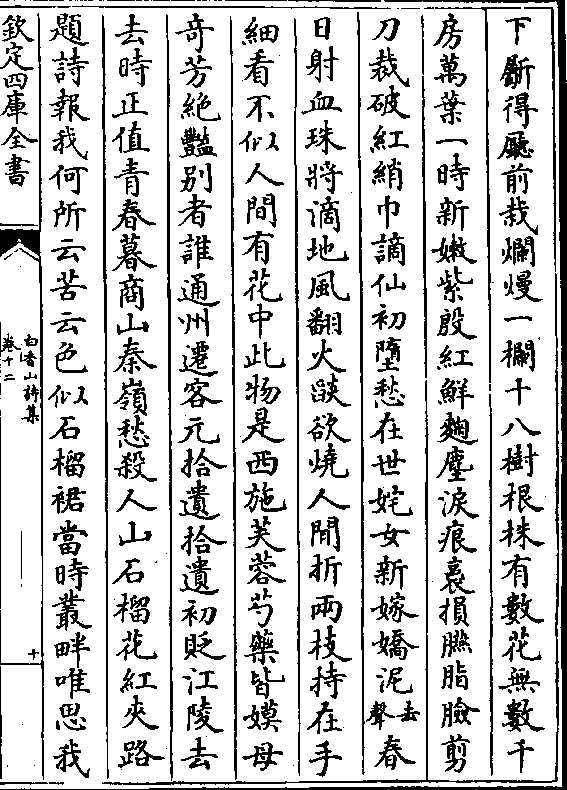 下斸得廳前栽爛熳一欄十八樹根株有數花無數千
房萬葉一時新嫩紫殷紅鮮麴塵淚痕裛損臙脂臉剪
刀裁破紅綃巾謫仙初墮愁在世姹女新嫁嬌泥去聲春
日射血珠將滴地風翻火燄欲燒人閒折兩枝持在手
細看不似人間有花中此物是西施芙蓉芍藥皆嫫母
奇芳絶豔别者誰通州遷客元拾遺拾遺初貶江陵去
去時正值青春暮商山秦嶺愁殺人山石榴花紅夾路
題詩報我何所云苦云色似石榴裙當時叢畔唯思我
欽定四庫全書
白香山詩集
卷十二
十